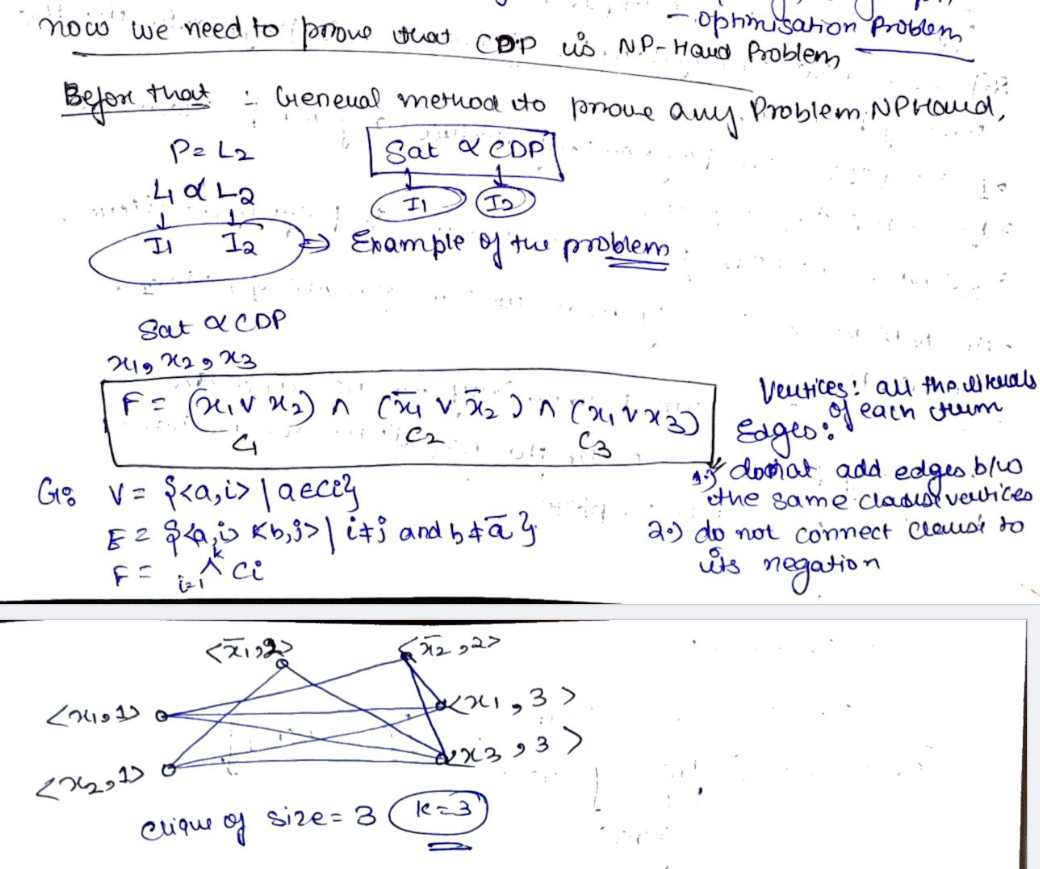 - Optimisation Problem
now we need to prove that CDP is NP-Hard Problem
Before that :- General method to prove any Problem NPHard,
P = L2
Sat ∝ CDP
L1 ∝ L2
I1 I2
I1 I2 => Example of the problem
Sat ∝ CDP
x1, x2, x3
F = (x1 ∨ x2) ∧ (x̄1 ∨ x̄2) ∧ (x1 ∨ x3)
C1 C2 C3
Vertices: all the literals
of each term
Edges:
1.) donot add edges b/w
the same clause vertices
2.) do not connect clause to
its negation
G: V = {<a,i> | a∈ci}
E = {<a,i> <b,j> | i≠j and b≠ā}
F = k∧i=1 Ci
<x̄1,2> <x̄2,2>
<x1,1> <x1,3>
<x2,1> <x3,3>
Clique of size = 3 k=3